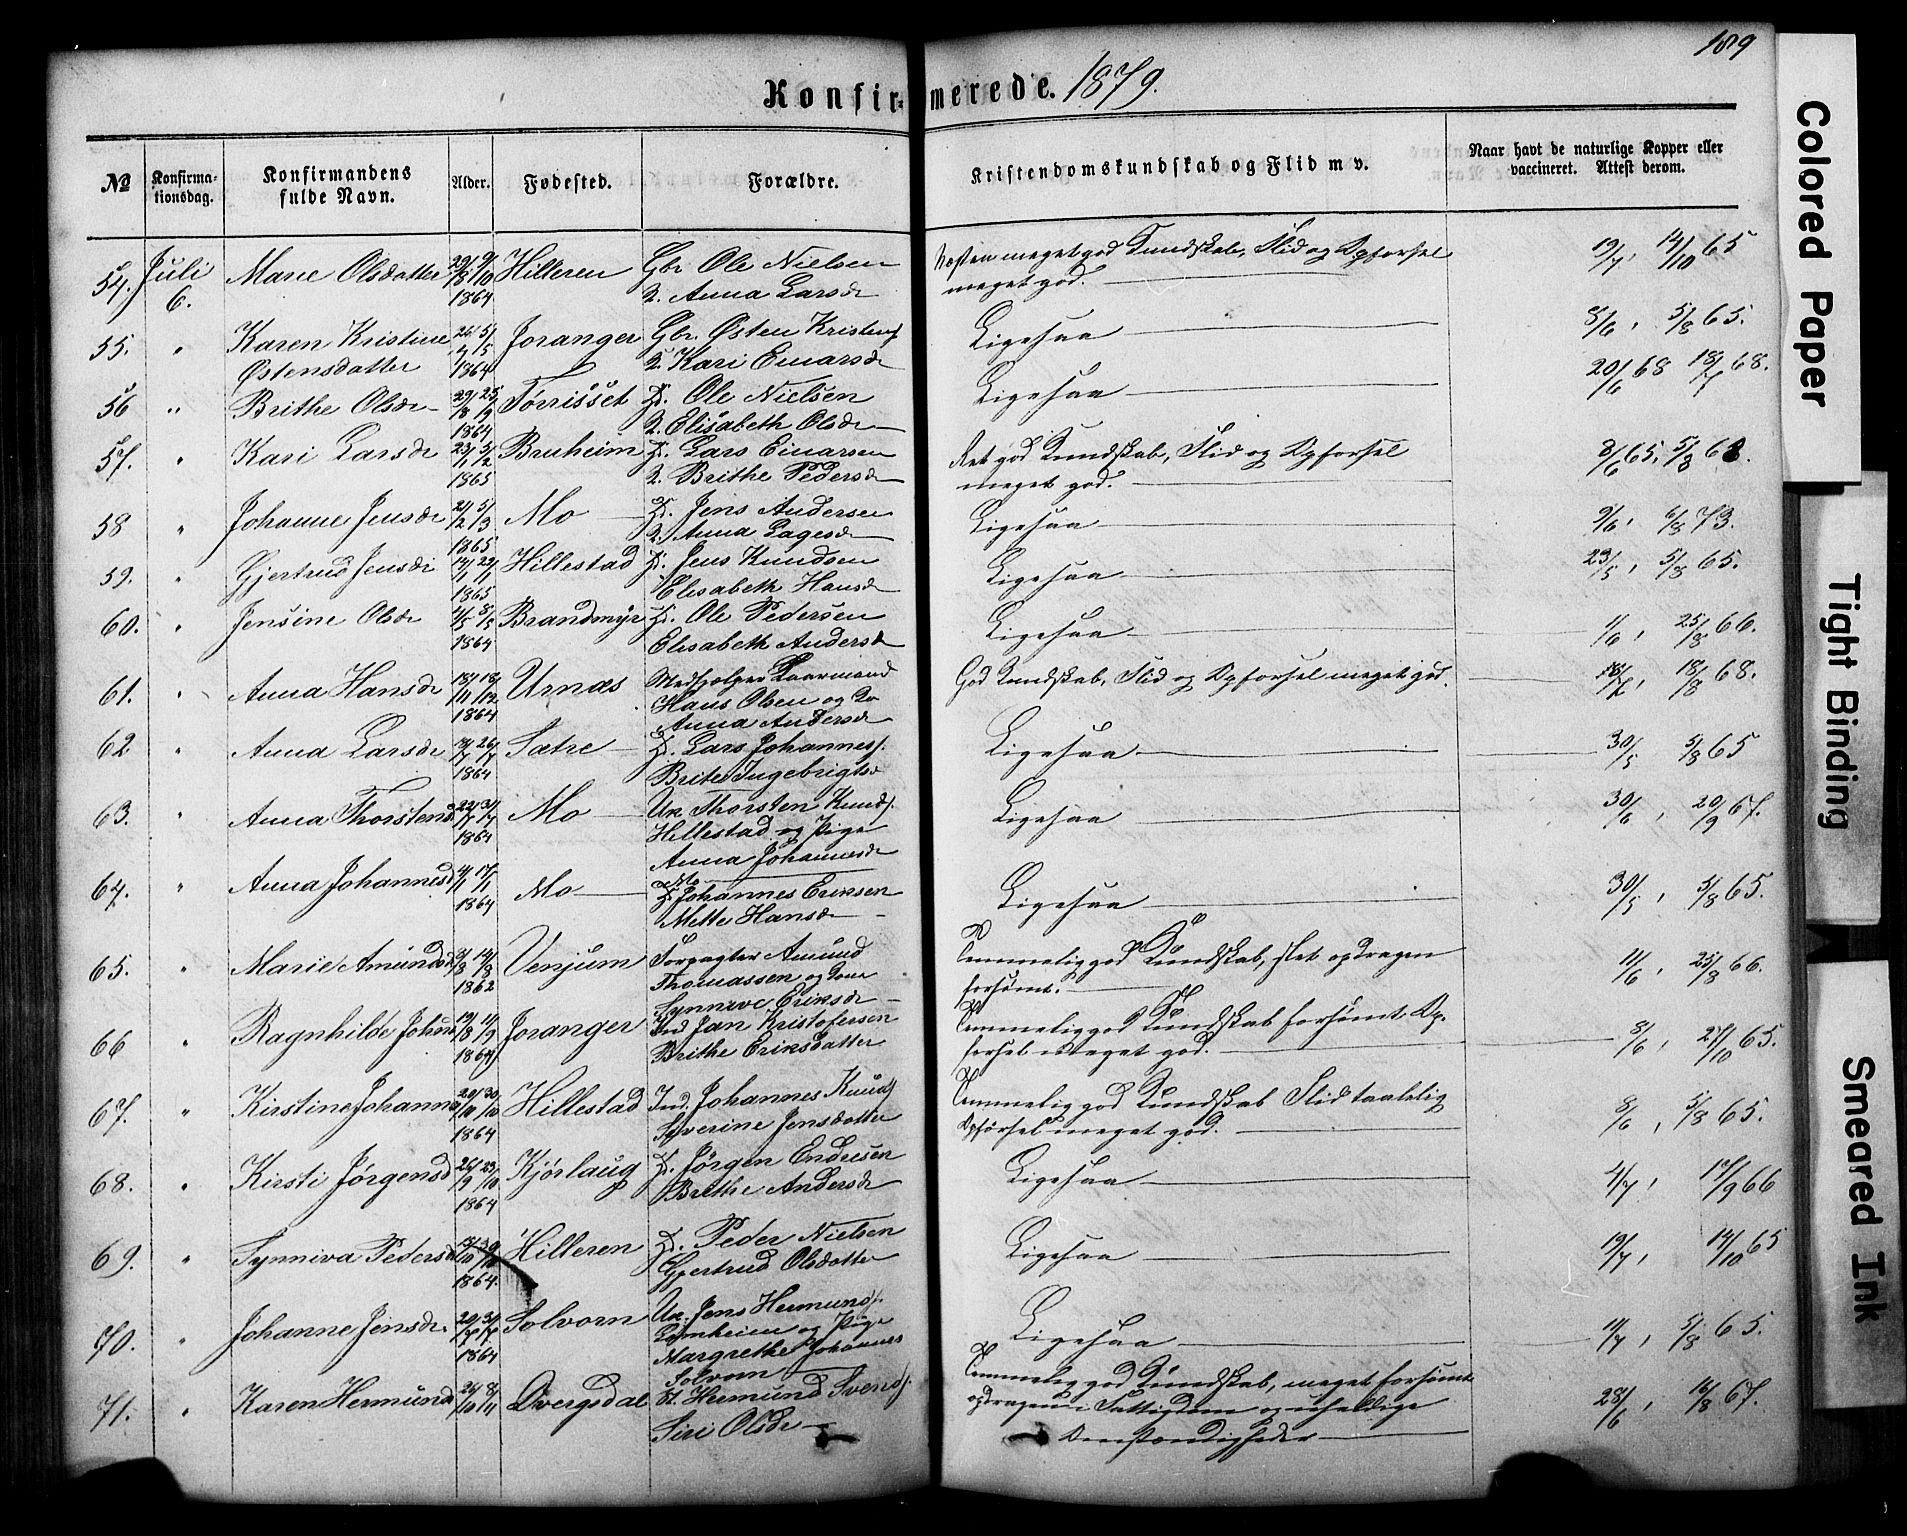 189
Konfirmerede. 1879.
№ Konfirmationsdag. Konfirmandens fulde Navn. Alder. Fødested. Forældre. Kristendomskundskab og Flid m v. Naar havt de naturlige Kopper eller vaccineret. Attest derom.
54. Juli 6. Marie Olsdatter 1864 Hilleren Gbr. Ole Nielsen
Q. Anna Larsd
Næsten meget god Kundskab, Flid og Opførsel
meget god. 19/7, 14/10 65
55. " Karen Kristine
Østensdatter 26/4 5/5 1864 Joranger Gbr. Østen Kristens
Q. Kari Einarsd
Ligesaa 8/6, 5/8 65.
56 " Brithe Olsdr 29/8 25/9 1864 Tørrisset Ole Nielsen
Q. Elisabeth Olsdr
Ligesaa 20/6 68 18/7 68.
57. " Kari Larsdr 23/1 5/2 1865 Bruheim Lars Einarsen
Q. Brithe Pedersd
Ret god Kundskab, Flid og Opførsel
meget god. 8/6 65, 5/8 68.
58 " Johanne Jensdr 21/2 5/3 1865 Mo Jens Andersen
Q. Anna
Ligesaa 9/6, 6/8 73.
59. " Gjertrud Jensdr 14/1 22/1 1865 Hillestad Jens Knudsen
Elisabeth Hansd
Ligesaa 23/5, 5/8 65.
60. " Jensine Olsdr 4/5 8/5 1864 Brandmyr Ole Pedersen
Elisabeth Andersd
Ligesaa 1/6, 25/8 66.
61. " Anna Hansdr 18/11 18/12 1864 Urnæs
Hans Olsen og
Anna Andersd
God Kundskab, Flid og Opførsel meget god. 18/7, 18/8 68.
62 " Anna Larsdr 26/7 1864 Sætre Lars Johannes
Brite Ingebrigtsd
Ligesaa 30/5 5/8 65
63. " Anna Thorstensd 22/7 31/7 1864 Mo Uk. Thorsten Knuds
Hillestad og Pige
Anna Johannesd
Mo
Ligesaa 30/6, 20/9 67.
64. " Anna Johannesd 17/1 1864 Mo Johannes Eriksen
Mette Hansdr
Ligesaa 30/5, 5/8 65.
65. " Marie Amundsd 14/8 1862 Venjum Forpagter Amund
Thomassen og Kone
Synneve Eriksdr
Temmelig god Kundskab, slet opdragen
forsømt. 11/6, 25/8 66.
66 " Ragnhilde 19/8 11/9 1864 Joranger Ind Jan Kristofersen
Brithe Eriksdatter
Temmelig god Kundskab forsømt, Op-
førsel meget god. 8/6, 27/10 65.
67. " Kirstine Johannesd 20/10 30/10 1864 Hillestad Ind. Johannes Knuds
Severine Jensdatter
Temmelig god Kundskab Flid taalelig
Opførsel meget god. 8/6, 5/8 65.
68. " Kirsti Jørgensd 26/9 23/10 1864 Kjørlaug Jørgen Endresen
Brithe Andersdr
Ligesaa 4/7, 17/9 66
69. " Synniva Pedersd 1864. Hilleren Peder Nielsen
Gjertrud Olsdatter
Ligesaa 19/7, 14/10 65
70. " Johanne Jensdr 20/7 31/7 1864 Solvorn Uk. Jens Hermunds
og Pige
Margrethe Johannes
Solvorn
Ligesaa 11/7, 5/8 65.
71. " Karen Hermunds 24/10 8/11 Dvergsdal Hermund Svends
Siri Olsdr
Temmelig god Kundskab, meget forsømt
opdragen i Fattigdom og uheldige
Omstændigheder 28/6, 16/8 67.
Colored Paper
Tight Binding
Smeared Ink